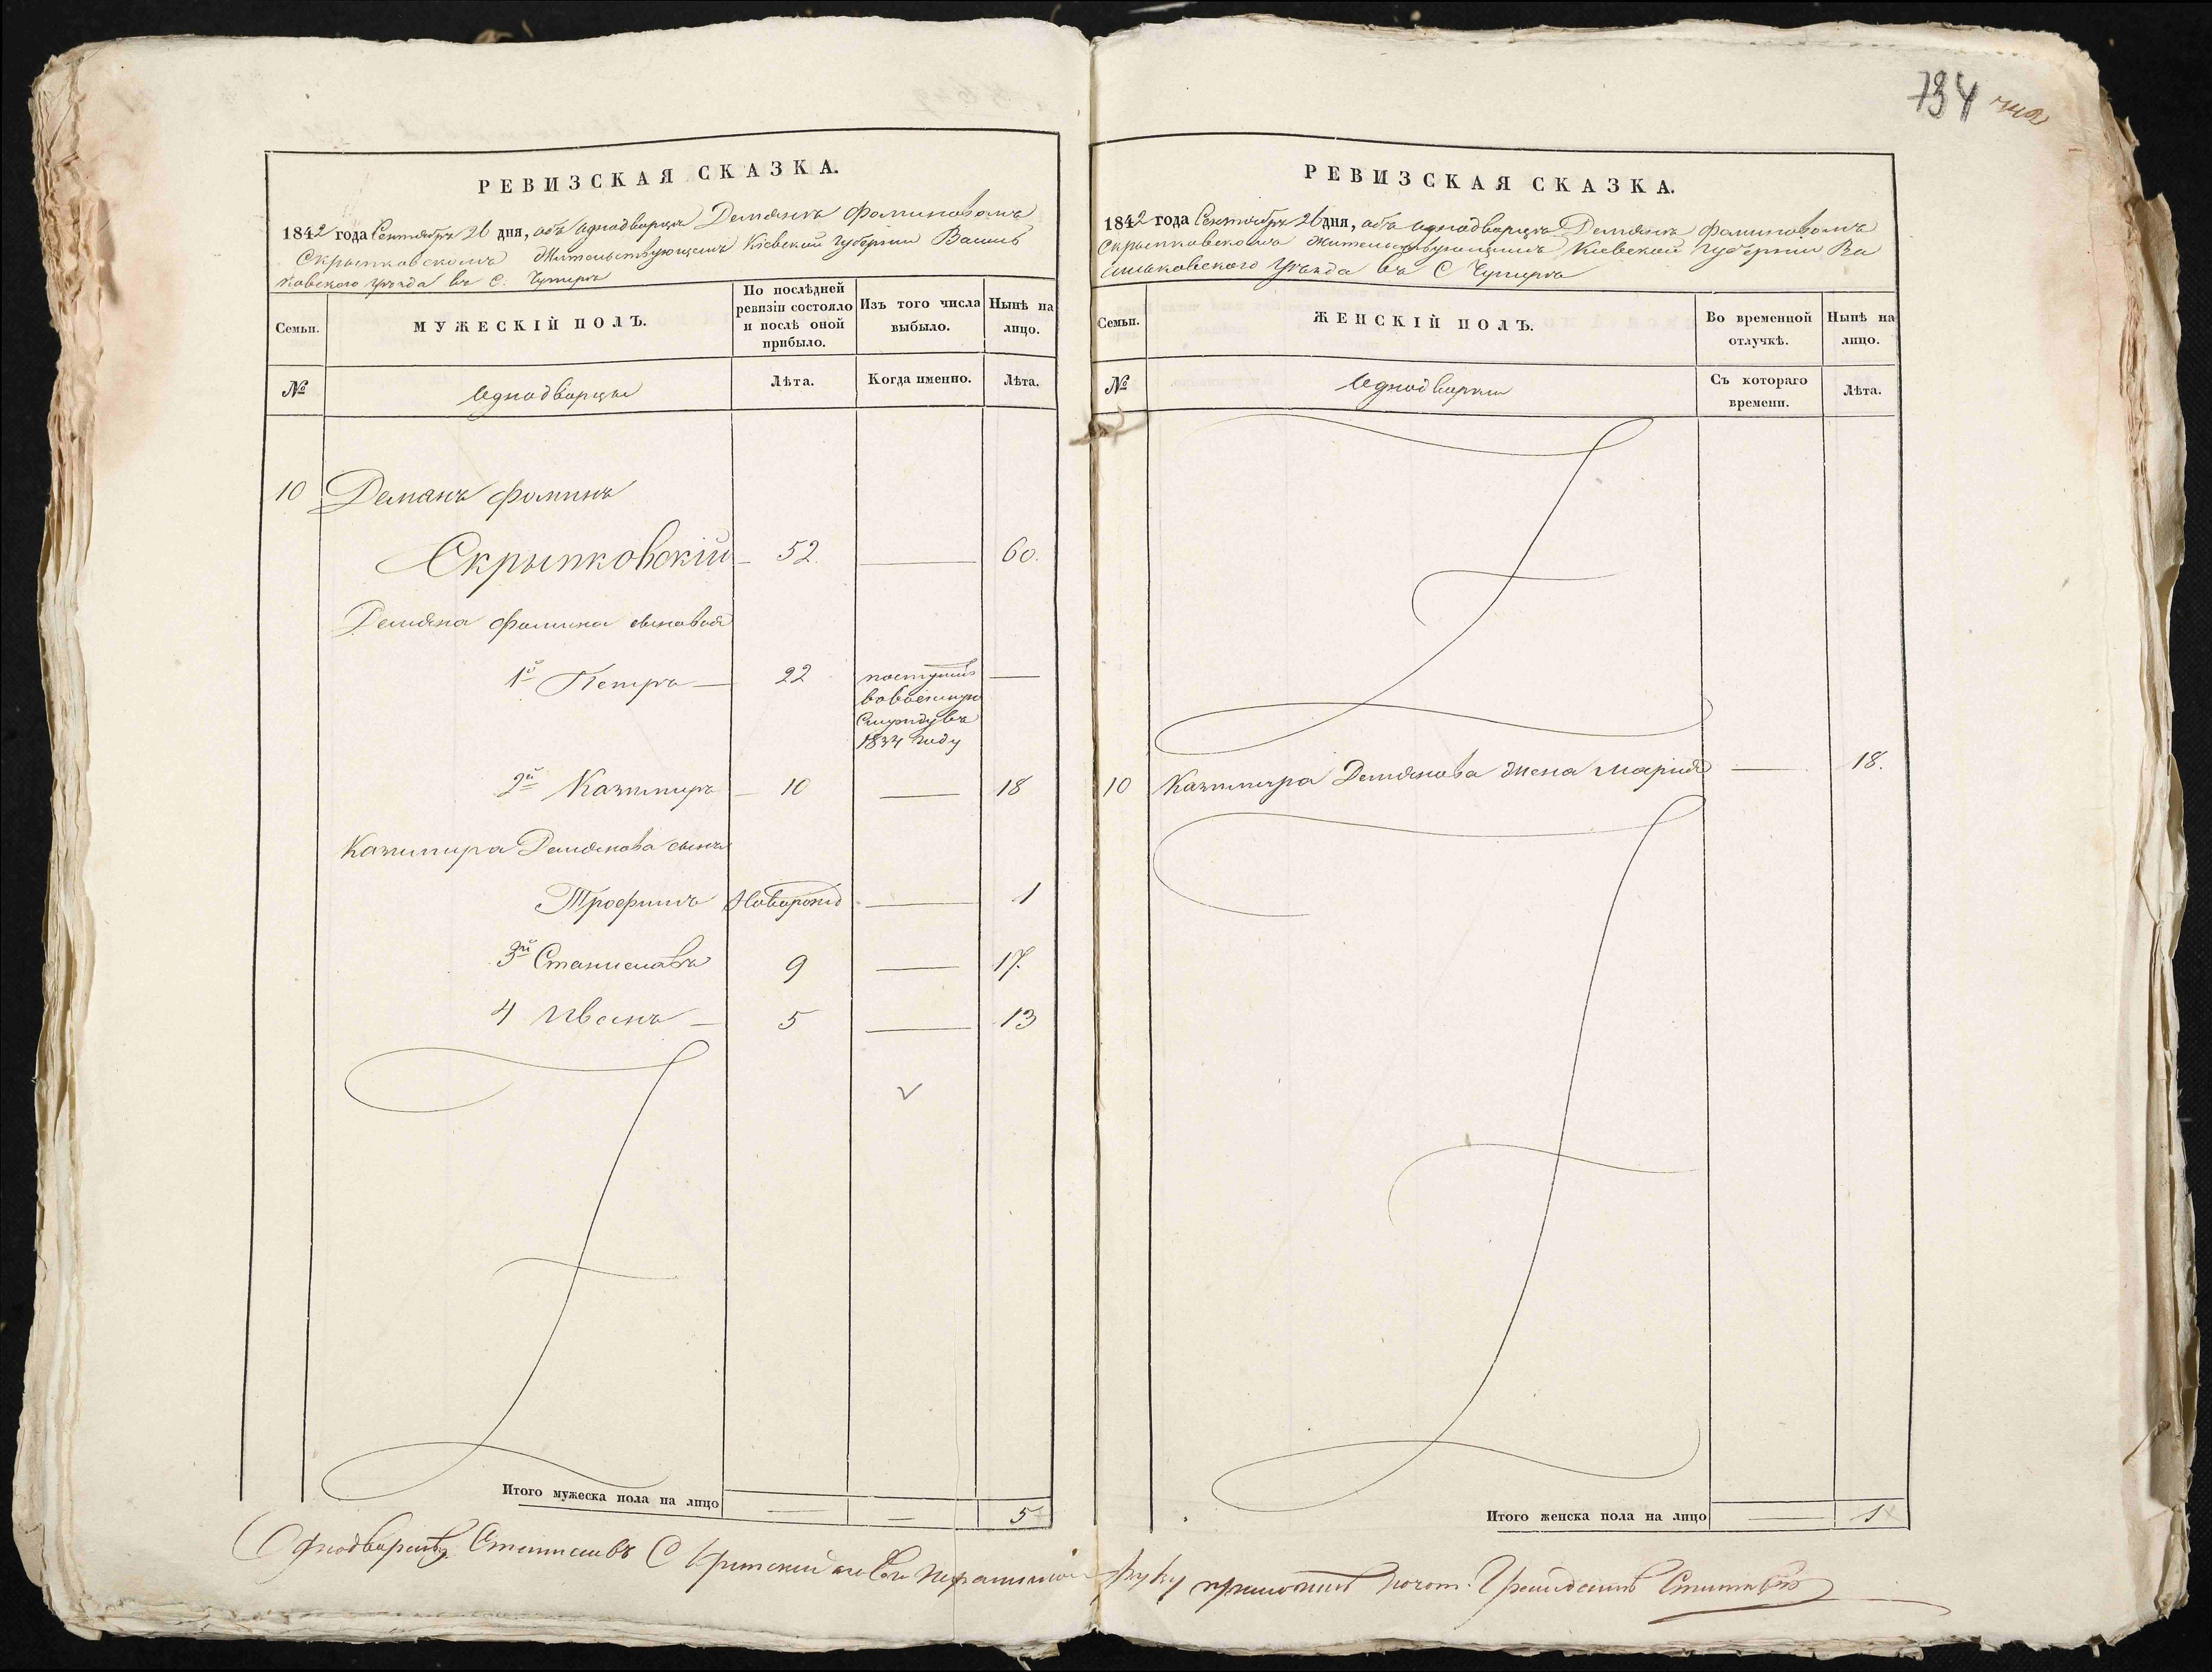 734
РЕВИЗСКАЯ СКАЗКА.
1842 года Сентября 26 дня, объ однодворцѣ Демянѣ Фоминовомъ
Скрыпковскомъ Жительствующемъ Кіевской Губерніи Василь
ковского уѣзда въ С.
Семьи.
МУЖЕСКІЙ ПОЛЪ.
По послѣдней
ревизіи состояло
и послѣ оной
прибыло.
Изъ того числа
выбыло.
Нынѣ на
лицо.
№
Однодворцы
Лѣта.
Когда именно.
Лѣта.
10 Демянъ Фоминъ
Скрыпковскій 52. — 60.
Демяна Фомина сыновья
1й Петръ — 22 поступилъ —
вовоенную
Службу въ
1834 году
2й Казимиръ — 10 — 18
Казимира Демянова сынъ
Трофимъ Новорожд — 1
3й Станиславъ 9 — 17.
4 Иванъ — 5 — 13
Итого мужеска пола на лицо — — 5
РЕВИЗСКАЯ СКАЗКА.
1842 года Сентября 26 дня, объ однодворцѣ Демянѣ Фоминовомъ
Скрыпковскомъ Жительствующимъ Кіевской Губерніи Ва
сильковского Уѣзда въ С
Семьи.
ЖЕНСКІЙ ПОЛЪ.
Во временной
отлучкѣ.
Нынѣ на
лицо.
№
Однодворки
Съ котораго
времени.
Лѣта.
10 Казимира Демянова жена Мария — 18.
Итого женска пола на лицо — 1
Однодворецъ Станиславъ
руку приложилъ